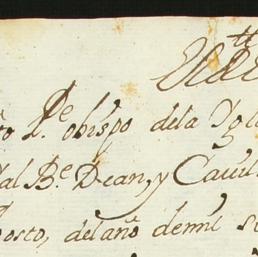 to P.e obispo dela Ygl
al Be. Dean, y Cavil
osto, del año demil s